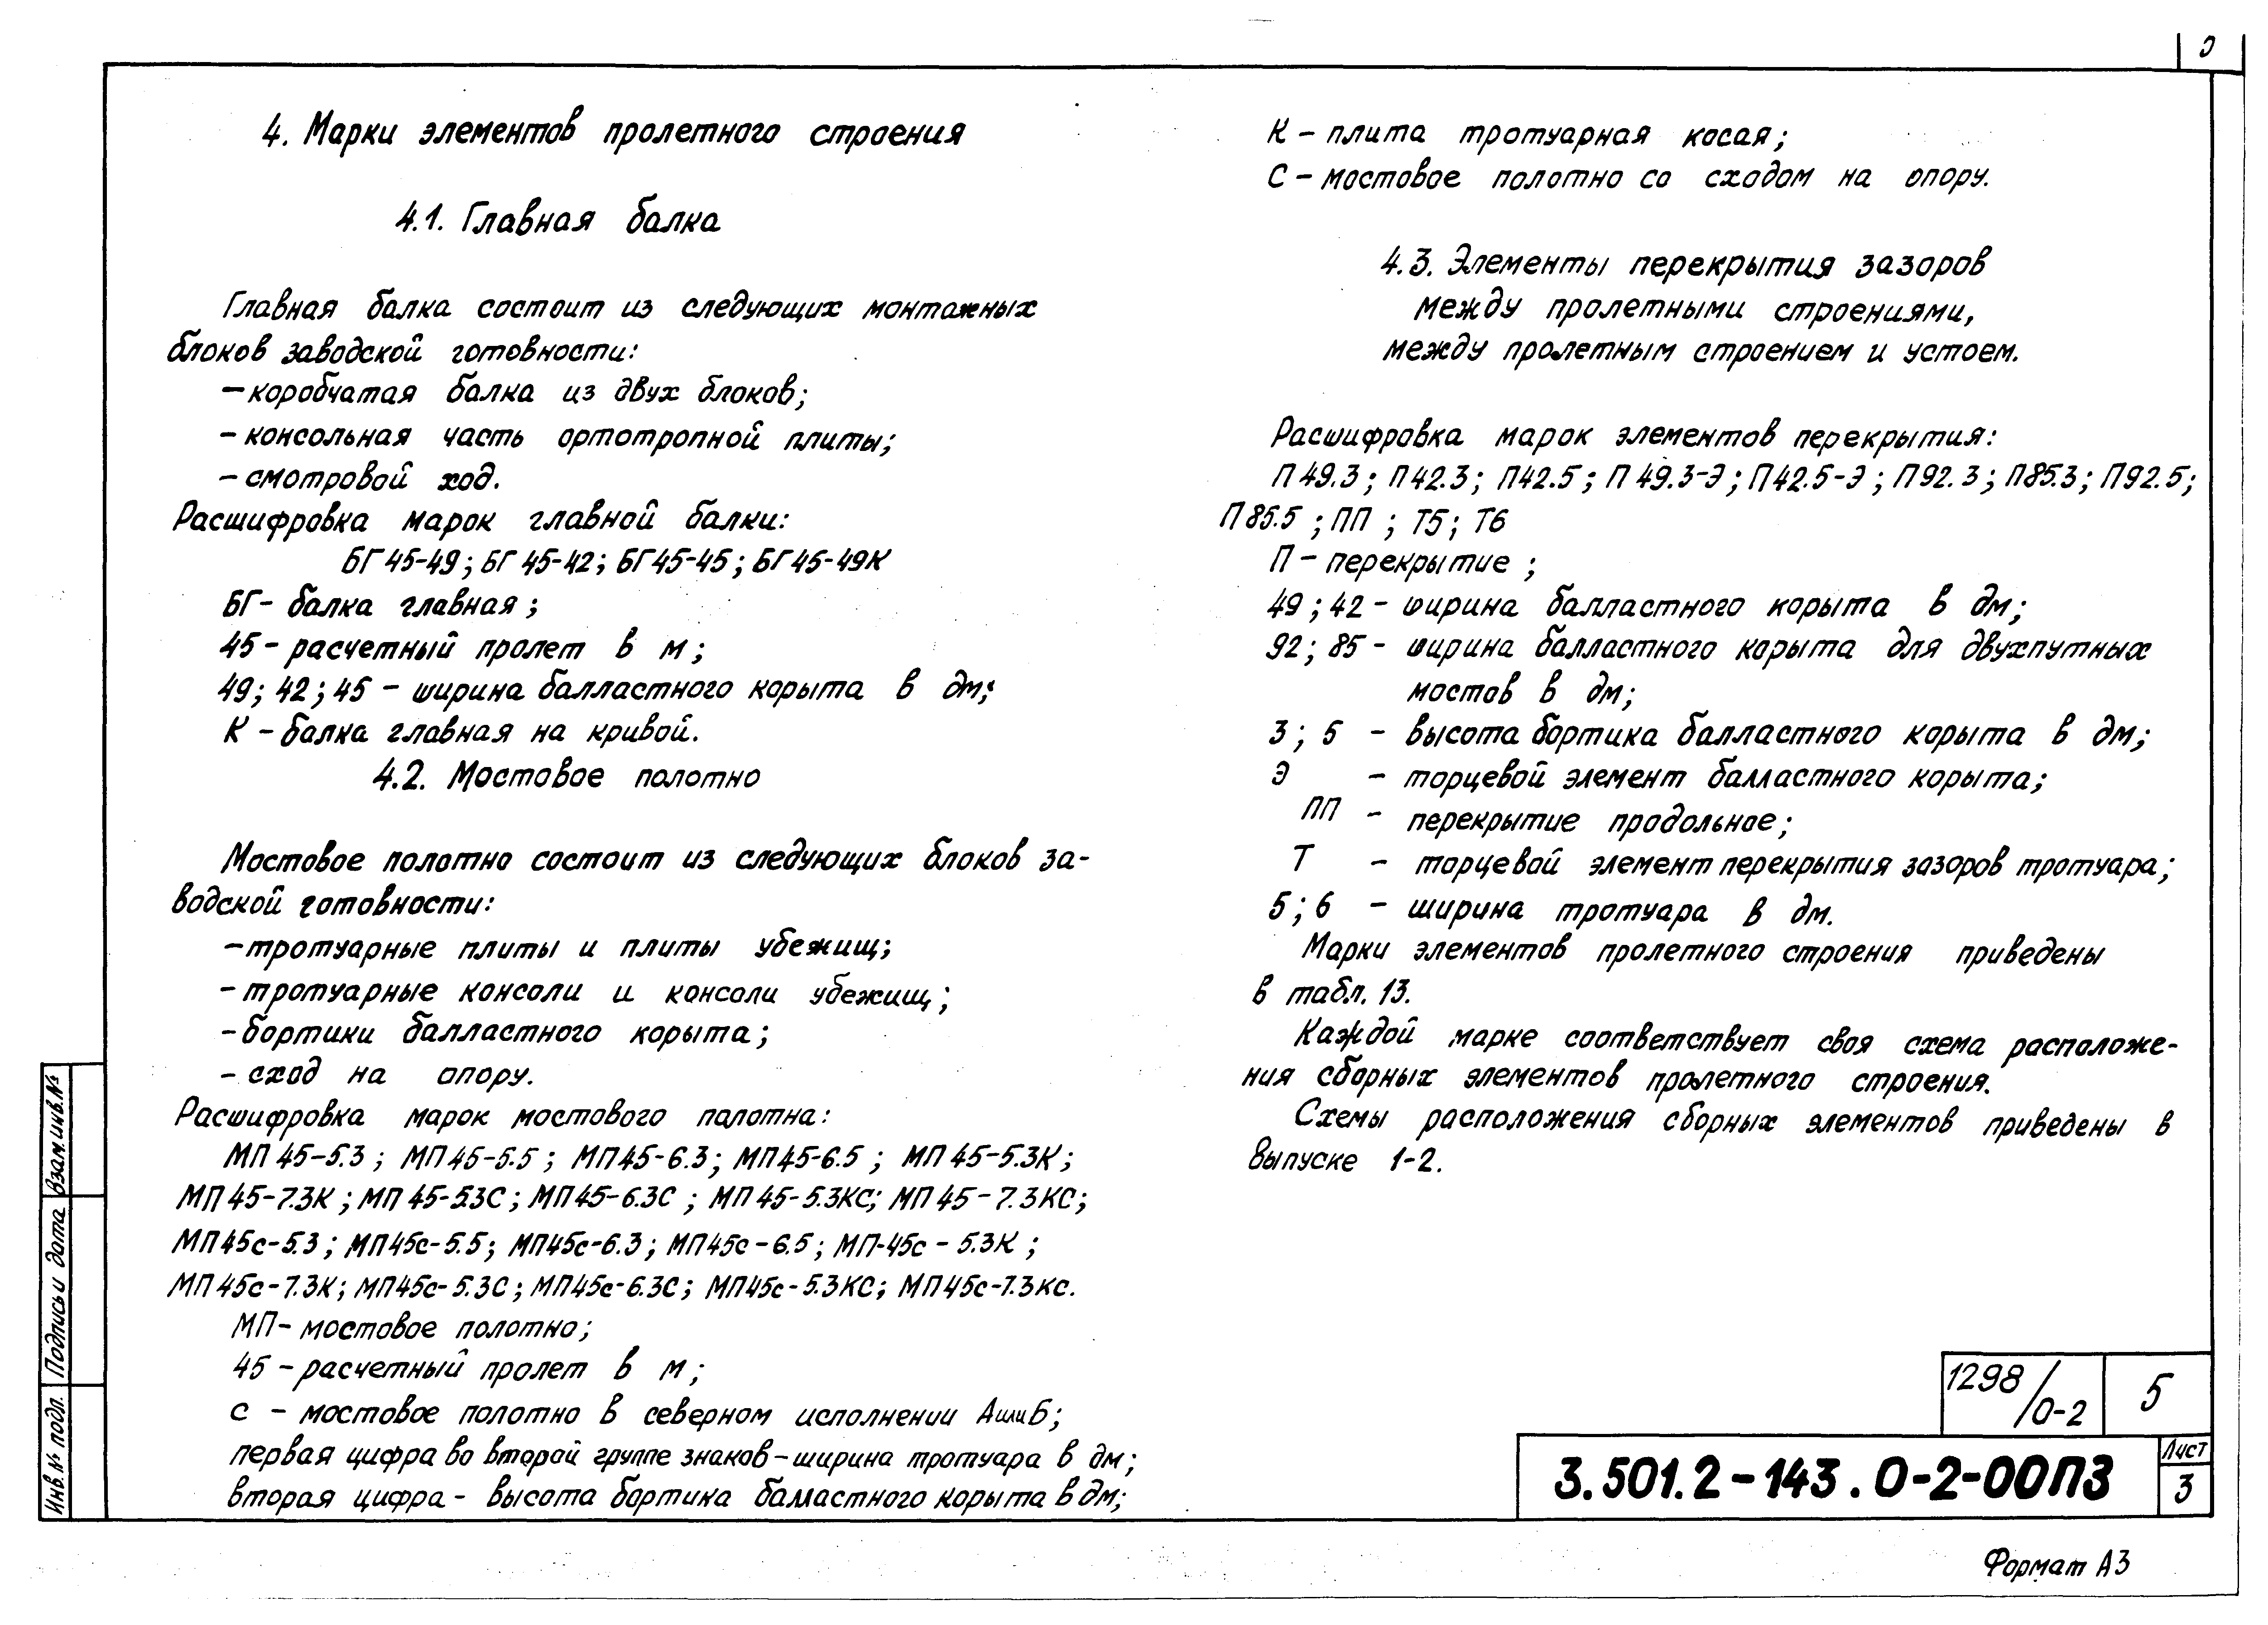 4. Марки элементов пролетного строения
4.1. Главная балка
Главная балка состоит из следующих монтажных
блоков заводской готовности:
- коробчатая балка из двух блоков;
- консольная часть ортотропной плиты;
- смотровой ход.
Расшифровка марок главной балки:
БГ45-49; БГ45-42; БГ45-45; БГ45-49К
БГ- балка главная;
45- расчетный пролет в м;
49; 42; 45 - ширина балластного корыта в дм;
К - балка главная на кривой.
4.2. Мостовое полотно
Мостовое полотно состоит из следующих блоков за-
водской готовности:
- тротуарные плиты и плиты убежищ;
- тротуарные консоли и консоли убежищ;
- бортики балластного корыта;
- сход на опору.
Расшифровка марок мостового полотна:
МП45-5.3; МП45-5.5; МП45-6.3; МП45-6.5; МП45-5.3К;
МП45-7.3К; МП45-5.3С; МП45-6.3С; МП45-5.3КС; МП45-7.3КС;
МП45с-5.3; МП45с-5.5; МП45с-6.3; МП45с-6.5; МП-45с-5.3К;
МП45с-7.3К; МП45с-5.3С; МП45с-6.3С; МП45с-5.3КС; МП45с-7.3КС.
МП- мостовое полотно;
45 - расчетный пролет в м;
с - мостовое полотно в северном исполнении А или Б;
первая цифра во второй группе знаков - ширина тротуара в дм;
вторая цифра - высота бортика балластного корыта в дм;
К - плита тротуарная косая;
С - мостовое полотно со сходом на опору.
4.3. Элементы перекрытия зазоров
между пролетными строениями,
между пролетным строением и устоем.
Расшифровка марок элементов перекрытия:
П49.3; П42.3; П42.5; П49.3-Э; П42.5-Э; П92.3; П85.3; П92.5;
П85.5; ПП; Т5; Т6
П - перекрытие;
49; 42 - ширина балластного корыта в дм;
92; 85 - ширина балластного корыта для двухпутных
мостов в дм;
3; 5 - высота бортика балластного корыта в дм;
Э - торцевой элемент балластного корыта;
ПП - перекрытие продольное;
Т - торцевой элемент перекрытия зазоров тротуара;
5; 6 - ширина тротуара в дм.
Марки элементов пролетного строения приведены
в табл. 13.
Каждой марке соответствует своя схема расположе-
ния сборных элементов пролетного строения.
Схемы расположения сборных элементов приведены в
выпуске 1-2.
1298/0-2 5
3.501.2-143.0-2-00ПЗ
Лист
3
Формат А3
Взам.инв.№
Подпись и дата
Инв.№ подл.